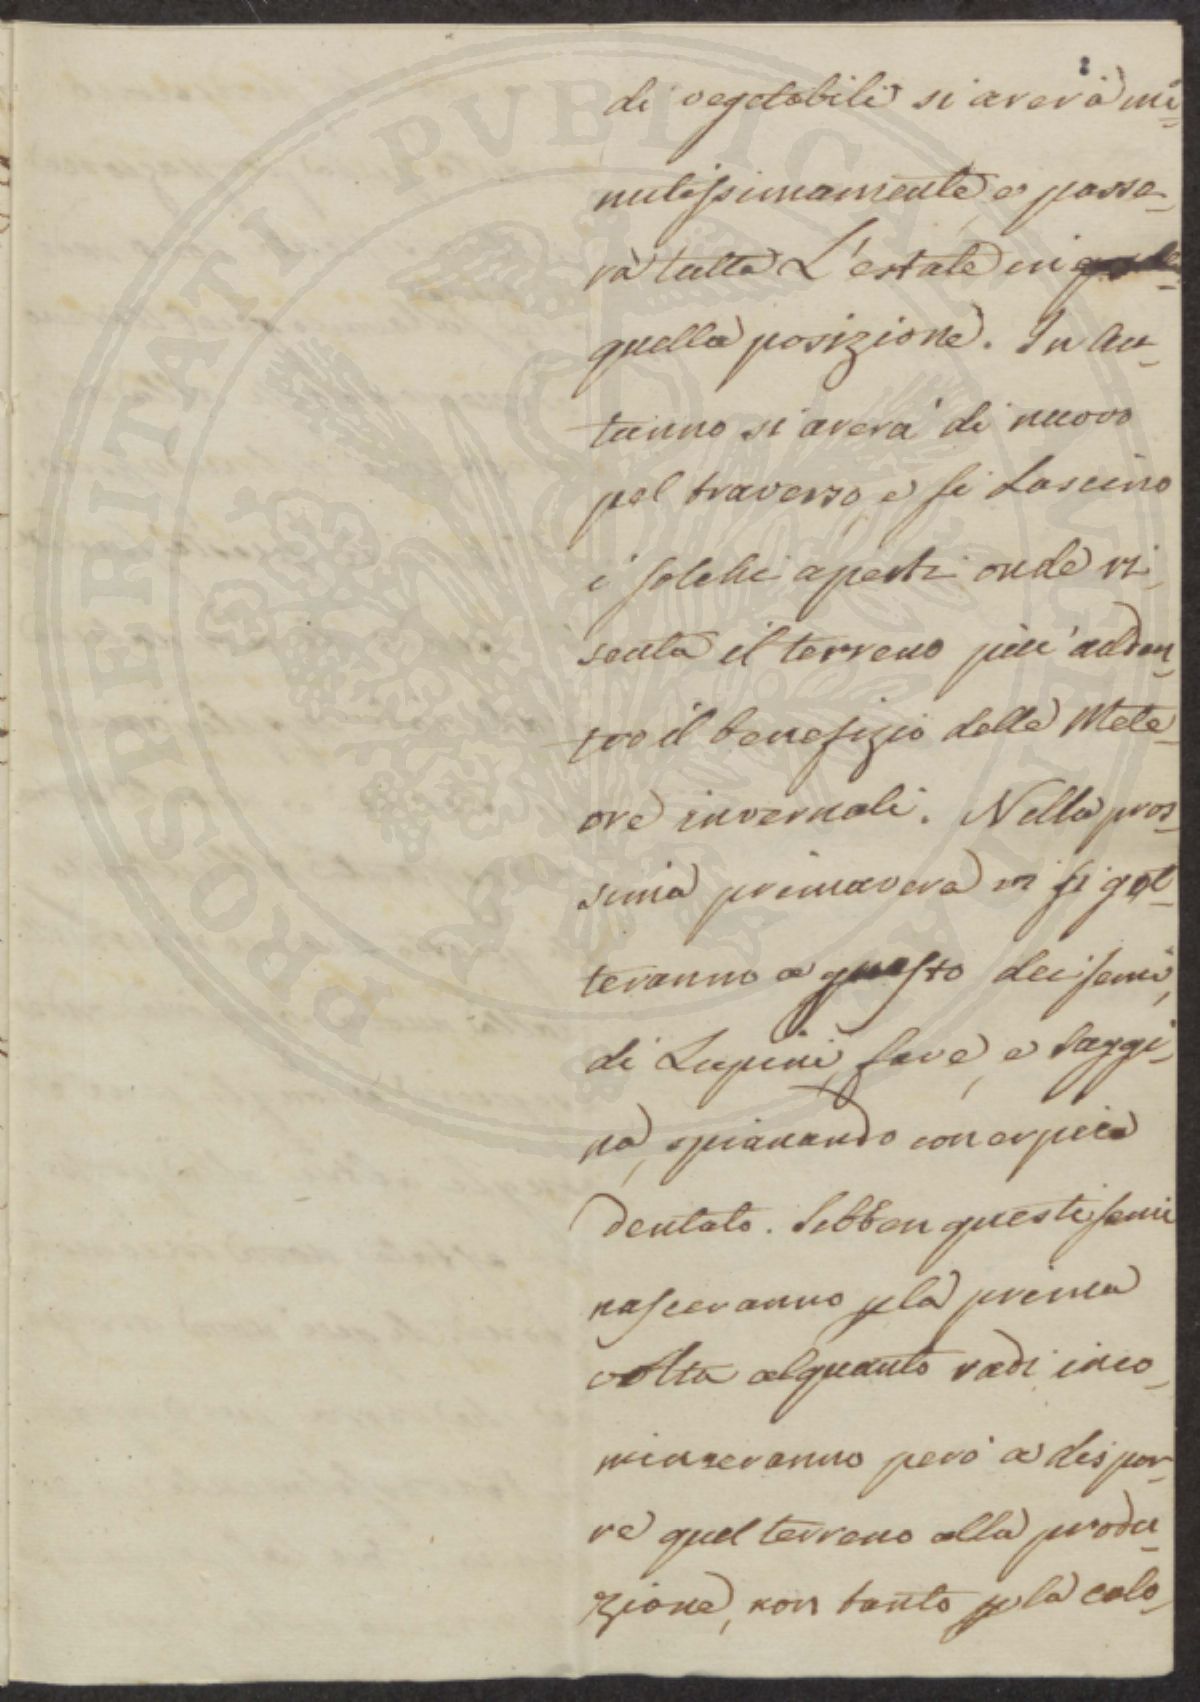 2
di vegetabili si arerà mi-
nutissimamente, e passe-
rà tutta L'estate in
quella posizione. In Au-
tunno si arerà di nuovo
pel traverso, e si Lascino
i solchi aperti onde ri-
senta il terreno più adden-
tro il benefizio delle Mete-
ore invernali. Nella pros-
sima primavera vi si get-
teranno a guasto dei semi
di Lupini, fave, e saggi-
na, spianando con erpice
dentato. Sebben questi semi
nasceranno p la prima
volta alquanto radi inco-
minzeranno però a dispor-
re quel terreno alla produ-
zione, non tanto p la calo-
PROSPERITATI PVBLICAE AVGENDAE